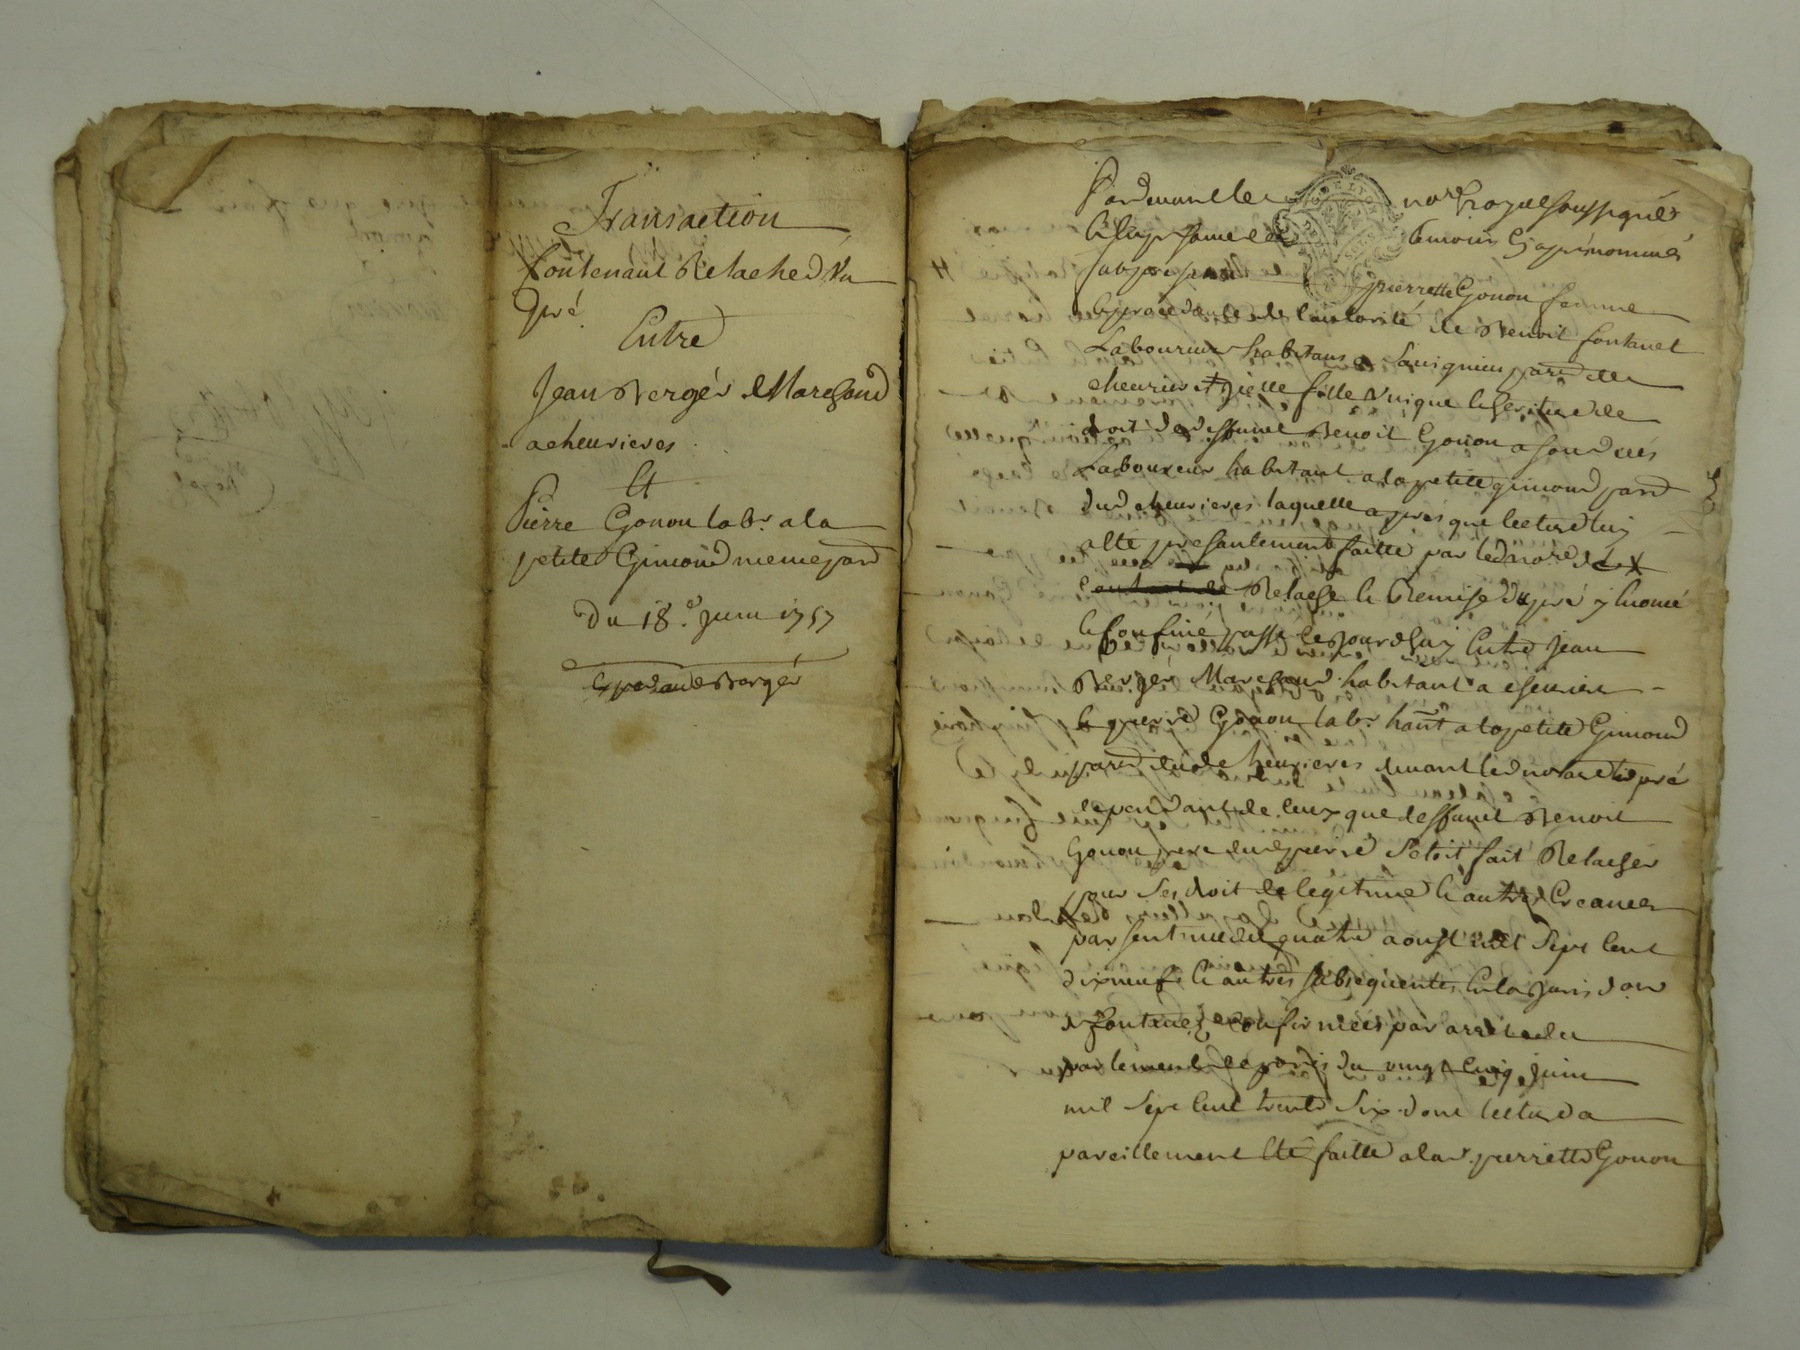 Transaction
Contenant Relache d'un
pré
Entre
Jean Bergér Marchand
a cheurieres
Et
Pierre Gonon labr. a la
petite Gimond meme parr
Du 18e. Juin 1757
Expedié aud Bergér
Pardevant le nore. Royal soussigné
temoins cy apré nommés
pierrette Gonon femme
procedante de l'autorité de Benoit fontanel
Laboureur habitans a parr de
cheurieres icelle fille unique heritiere de
droit de deffunt Benoit Gonon
Laboureur habitant a la petite gimond parr
dud cheurieres laquelle aprés que lecture luy
a été presentement faitte par led nore. de
Relache et Remise du pré y enoncé
et confiné passé ce jourdhuy Entre Jean
Bergér Marchand habitant a cheurieres
et pierre Gonon labr. hant. a la petite Gimond
parr dud cheurieres devant led notaire pré
dependant de ceux que deffunt Benoit
Gonon frere dud pierre s'etoit fait Relacher
pour ses droit de legitime et autres Creances
par sentence du quatre aoust mil Sept Cent
dixneuf et autres subsequentes En la Jurisdon
de fontanez confirmées par arret du
parlement de paris du vingt cinq juin
mil Sept Cent trente Six dont lecture a
pareillement Eté faitte a lad. pierrette Gonon